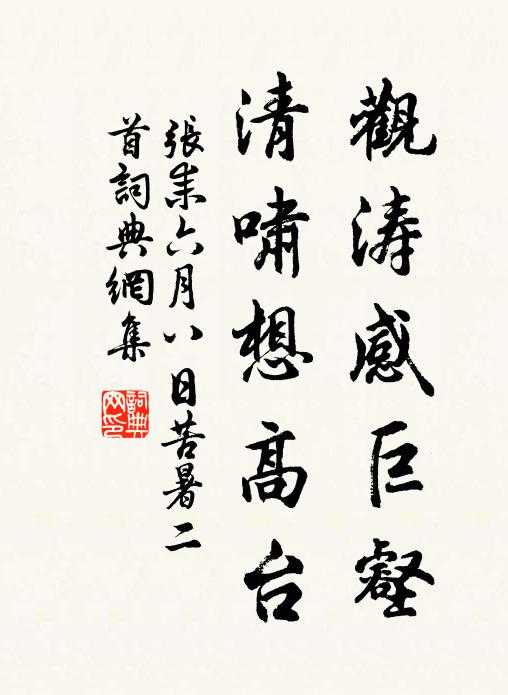 觀涛感巨壑
清嘯想高台
張耒六月八日苦暑二
首詞典網集
詞典网印